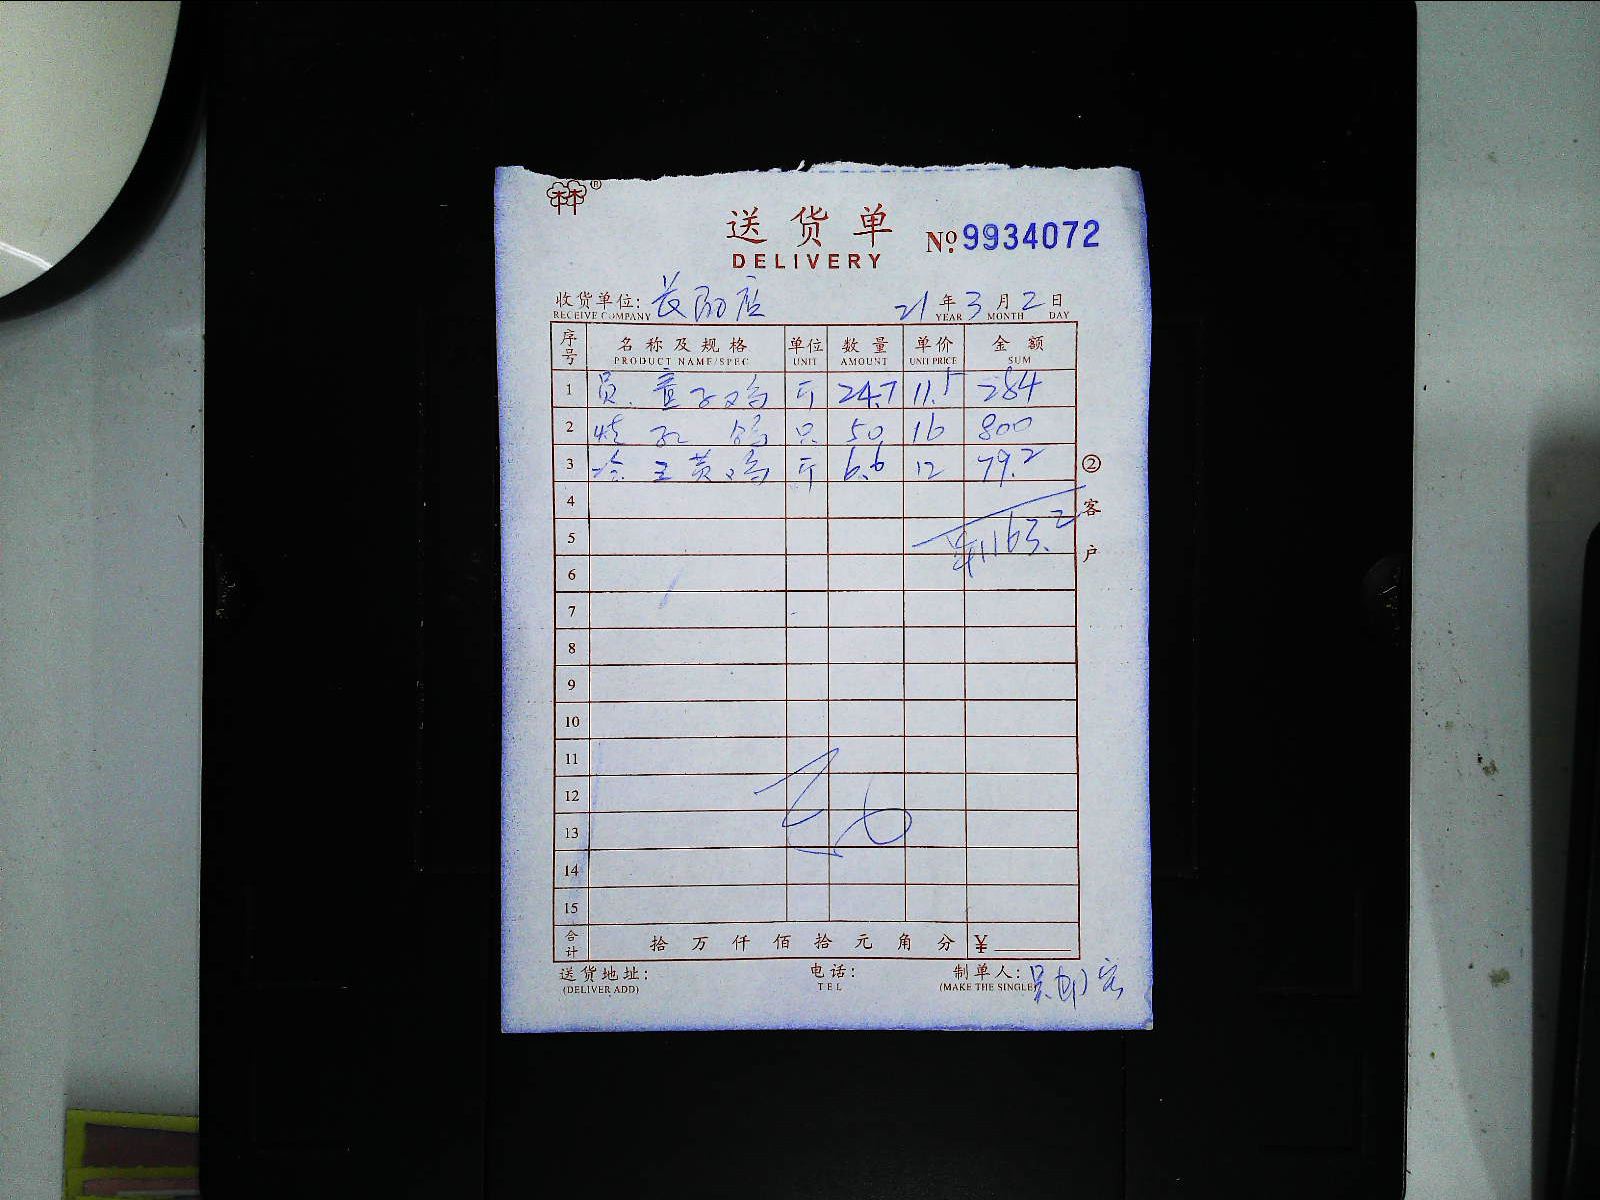 林®
送货单
DELIVERY
№ 9934072
收货单位: 长阳店 21年3月2日
RECEIVE COMPANY YEAR MONTH DAY
序号 名称及规格 单位 数量 单价 金额
PRODUCT NAME/SPEC UNIT AMOUNT UNIT PRICE SUM
1 员.童子鸡 斤 24.7 11.5 284
2 乳鸽 只 50 16 800
3 三黄鸡 斤 6.6 12 79.2
4
5 1163.2
6
7
8
9
10
11
12
13
14
15
合计 拾 万 仟 佰 拾 元 角 分 ¥
②客户
送货地址: 电话: 制单人:
(DELIVER ADD) TEL (MAKE THE SINGLE)